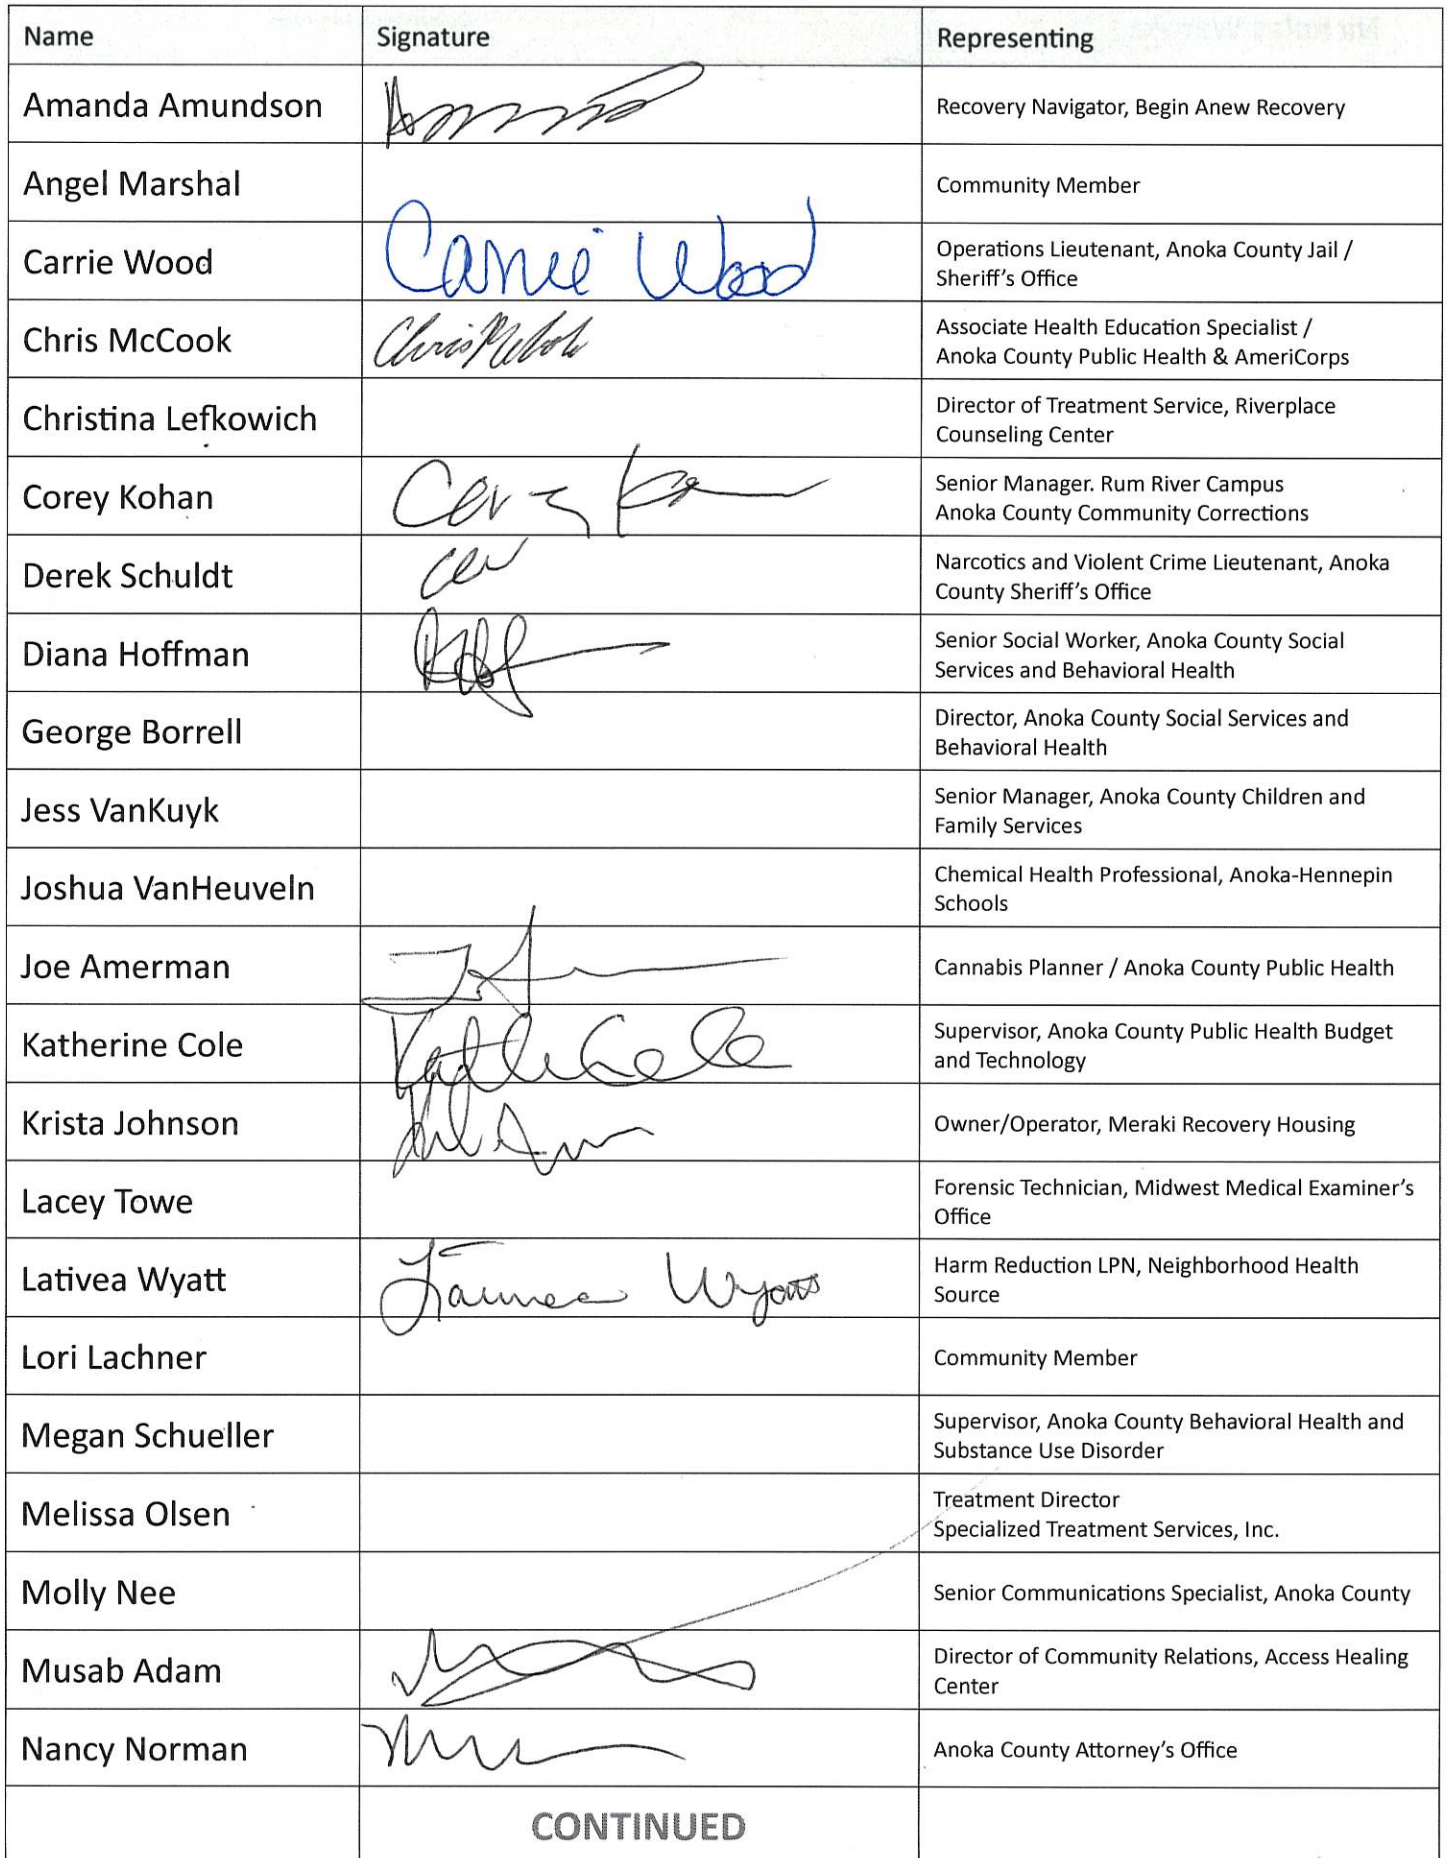 Name Signature Representing
Amanda Amundson Recovery Navigator, Begin Anew Recovery
Angel Marshal Community Member
Carrie Wood Carrie Wood Operations Lieutenant, Anoka County Jail /
Sheriff's Office
Chris McCook Chris McCook Associate Health Education Specialist /
Anoka County Public Health & AmeriCorps
Christina Lefkowich Director of Treatment Service, Riverplace
Counseling Center
Corey Kohan Senior Manager. Rum River Campus
Anoka County Community Corrections
Derek Schuldt Narcotics and Violent Crime Lieutenant, Anoka
County Sheriff's Office
Diana Hoffman Senior Social Worker, Anoka County Social
Services and Behavioral Health
George Borrell Director, Anoka County Social Services and
Behavioral Health
Jess VanKuyk Senior Manager, Anoka County Children and
Family Services
Joshua VanHeuveln Chemical Health Professional, Anoka-Hennepin
Schools
Joe Amerman Cannabis Planner / Anoka County Public Health
Katherine Cole Supervisor, Anoka County Public Health Budget
and Technology
Krista Johnson Owner/Operator, Meraki Recovery Housing
Lacey Towe Forensic Technician, Midwest Medical Examiner's
Office
Lativea Wyatt Wyatt Harm Reduction LPN, Neighborhood Health
Source
Lori Lachner Community Member
Megan Schueller Supervisor, Anoka County Behavioral Health and
Substance Use Disorder
Melissa Olsen Treatment Director
Specialized Treatment Services, Inc.
Molly Nee Senior Communications Specialist, Anoka County
Musab Adam Director of Community Relations, Access Healing
Center
Nancy Norman Anoka County Attorney's Office
CONTINUED